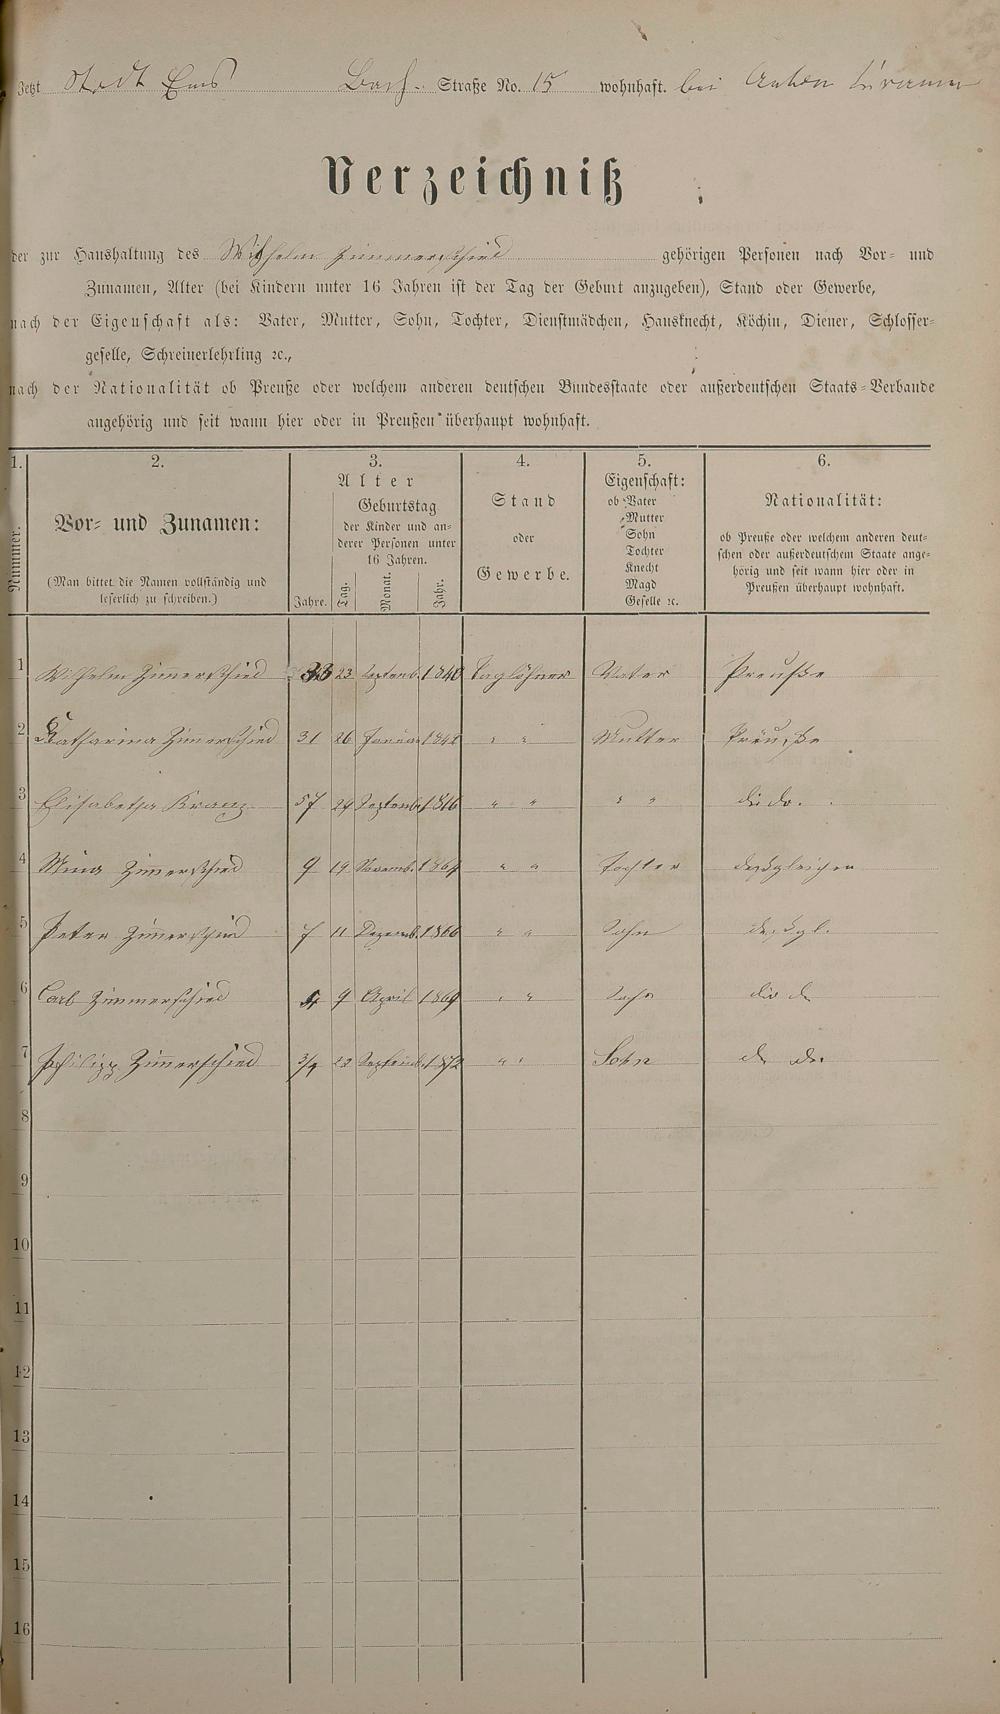 Jetzt Stadt Ems Bach- Straße No. 15 wohnhaft. bei Anton
Verzeichniß
der zur Haushaltung des Wilhelm Zimmerschied gehörigen Personen nach Vor- und
Zunamen, Alter (bei Kindern unter 16 Jahren ist der Tag der Geburt anzugeben), Stand oder Gewerbe,
nach der Eigenschaft als: Vater, Mutter, Sohn, Tochter, Dienstmädchen, Hausknecht, Köchin, Diener, Schlosser-
geselle, Schreinerlehrling ꝛc.,
nach der Nationalität ob Preuße oder welchem anderen deutschen Bundesstaate oder außerdeutschen Staats-Verbande
angehörig und seit wann hier oder in Preußen überhaupt wohnhaft.
1. 2. 3. 4. 5. 6.
Nummer.
Vor- und Zunamen:
(Man bittet die Namen vollständig und
leserlich zu schreiben.)
Alter
Geburtstag
der Kinder und an-
derer Personen unter
16 Jahren.
Jahre. Tag. Monat. Jahr.
Stand
oder
Gewerbe.
Eigenschaft:
ob Vater
Mutter
Sohn
Tochter
Knecht
Magd
Geselle ꝛc.
Nationalität:
ob Preuße oder welchem anderen deut-
schen oder außerdeutschem Staate ange-
hörig und seit wann hier oder in
Preußen überhaupt wohnhaft.
1 Wilhelm Zim̄erschied 33 23 Septemb. 1840 Taglöhner Vater Preuße
2 Katharina Zim̄erschied 31 26 Januar 1842 " " Mutter Präuße
3 Elisabetha Kranz 57 24 Septemb. 1816 " " " " dito.
4 Mina Zim̄erschied 9 19 Novemb. 1864 " " Tochter desgleichen
5 Peter Zim̄erschied 7 11 Dezemb. 1866 " " Sohn desgl.
6 Carl Zimmerschied 4 9 April 1869 " " Sohn
7 Philipp Zim̄erschied 3/4 23 Septemb. 1872 " " Sohn do do.
8
9
10
11
12
13
14
15
16